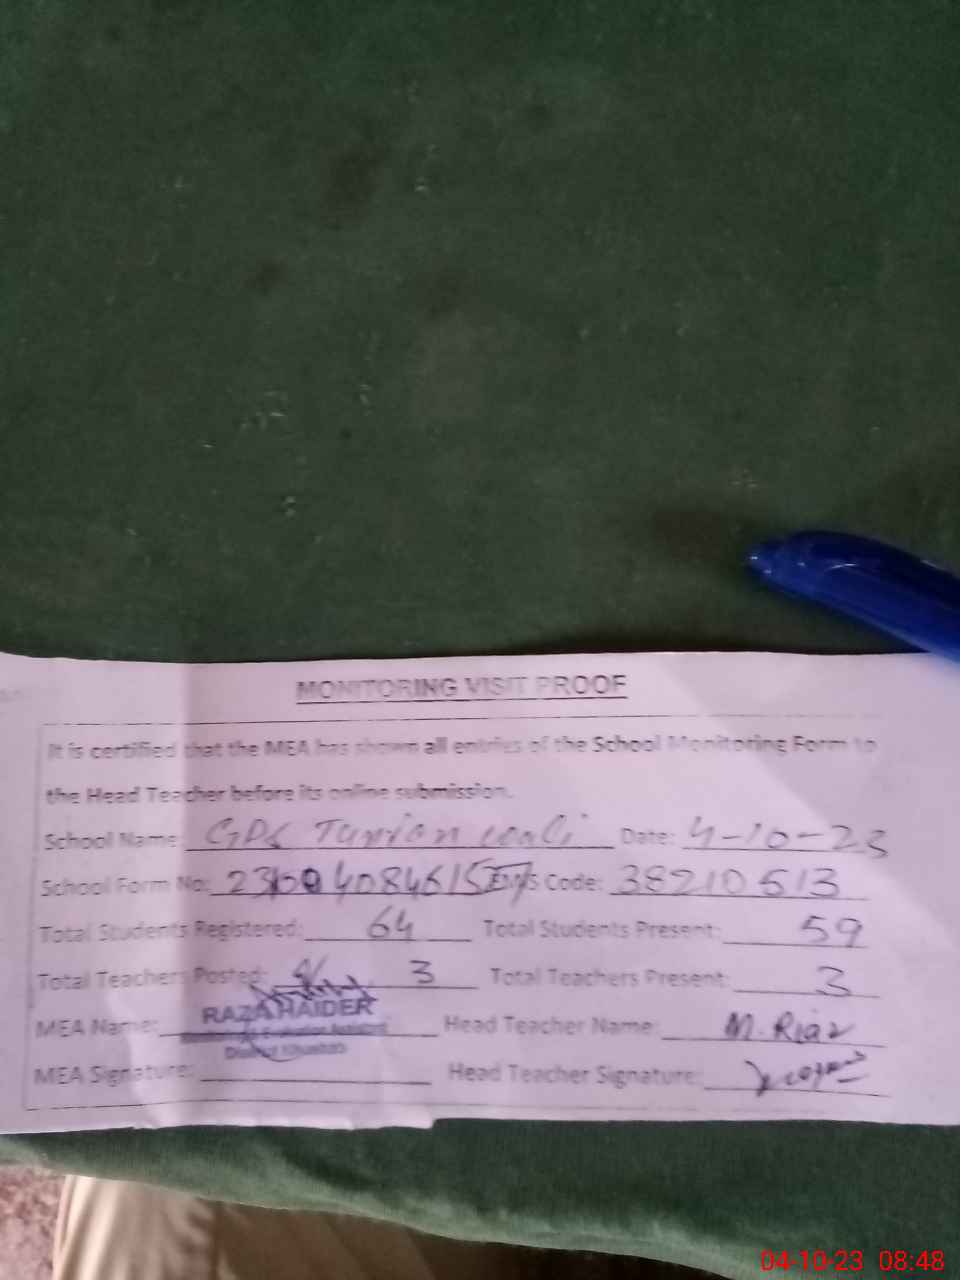 MONITORING VISIT PROOF
It is certified that the MEA has shown all entries of the School Monitoring Form to
the Head Teacher before its online submission.
School Name: GPS Date: 4-10-23
School Form No: Code: 38210513
Total Students Registered: 64 Total Students Present: 59
Total Teachers Posted: 3 Total Teachers Present: 3
MEA Name: RAZA HAIDER Head Teacher Name: M. Riaz
Evaluation Assistant
District Khushab
MEA Signature: Head Teacher Signature:
04-10-23 08:48